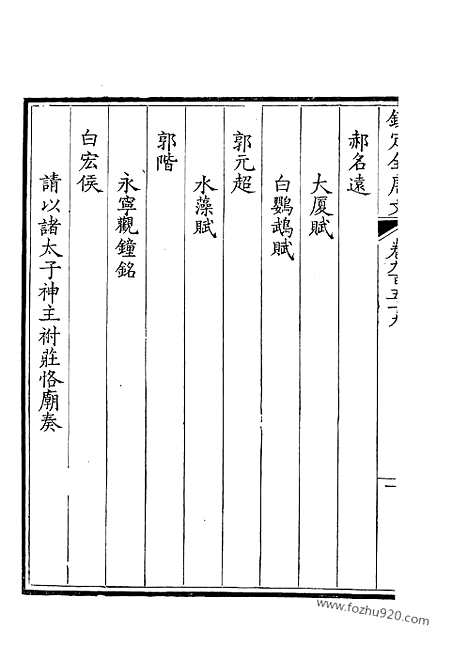 欽定全唐文
卷九百五十九
一
郝名遠
大厦賦
白鸚鵡賦
郭元超
水藻賦
郭階
永寧觀鐘銘
白宏儀
請以諸太子神主祔莊恪廟奏
www.fozhu920.com